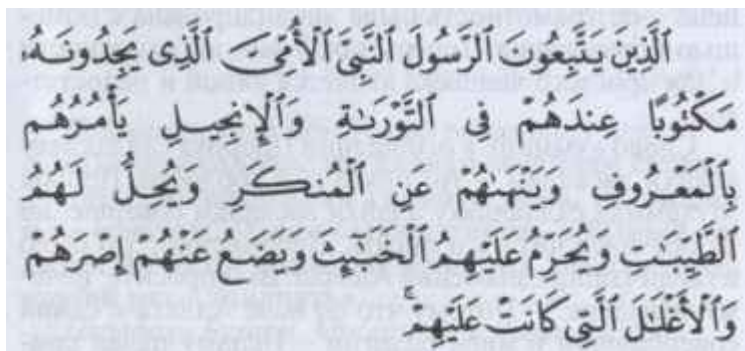 ٱلَّذِينَ يَتَّبِعُونَ ٱلرَّسُولَ ٱلنَّبِىَّ ٱلْأُمِّىَّ ٱلَّذِى يَجِدُونَهُۥ
مَكْتُوبًا عِندَهُمْ فِى ٱلتَّوْرَىٰةِ وَٱلْإِنجِيلِ يَأْمُرُهُم
بِٱلْمَعْرُوفِ وَيَنْهَىٰهُمْ عَنِ ٱلْمُنكَرِ وَيُحِلُّ لَهُمُ
ٱلطَّيِّبَـٰتِ وَيُحَرِّمُ عَلَيْهِمُ ٱلْخَبَـٰٓئِثَ وَيَضَعُ عَنْهُمْ إِصْرَهُمْ
وَٱلْأَغْلَـٰلَ ٱلَّتِى كَانَتْ عَلَيْهِمْ ۚ